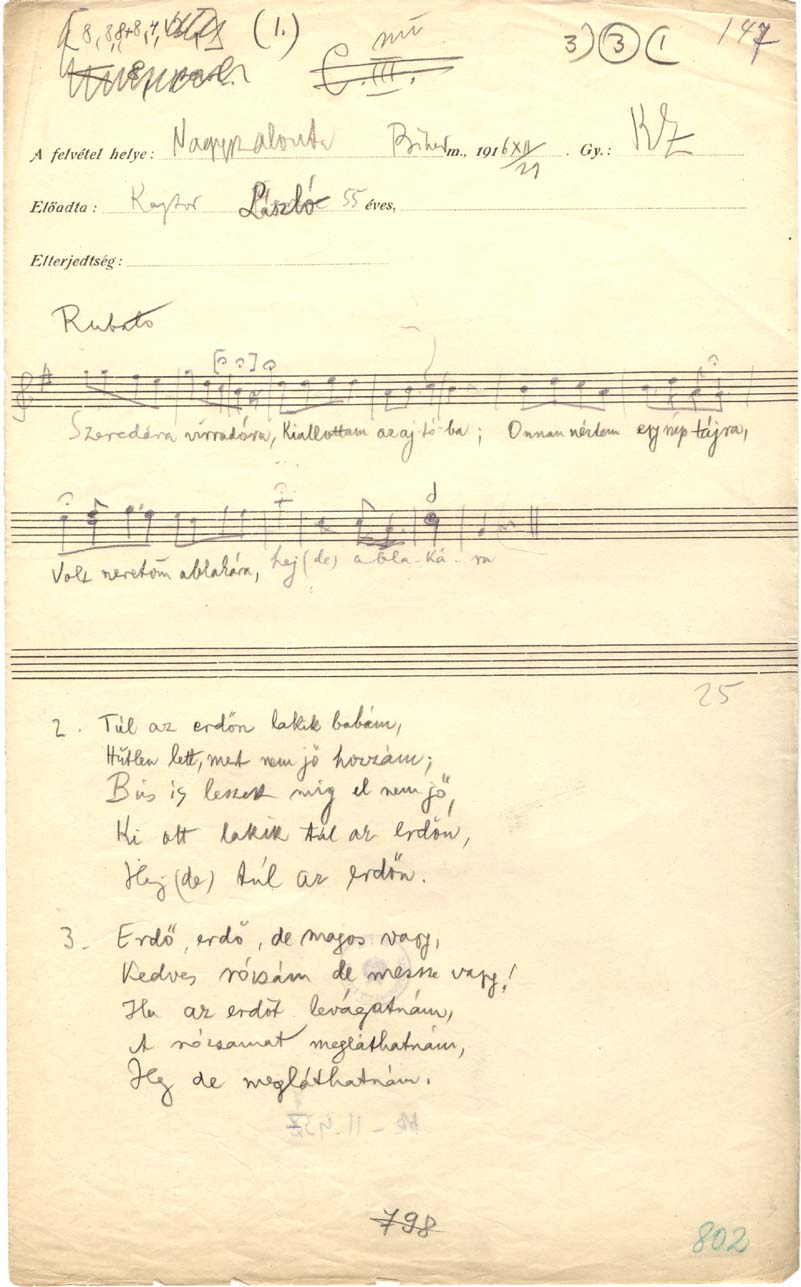 (1.) 3) 3 (1 147
C. III.
A felvétel helye: Nagyszalonta Bihar m., 1916 XII/21 . Gy.: KZ
Előadta: Kaptor László 55 éves,
Elterjedtség:
Rubato
Szeredára virradóra, Kiallottam az aj tó ba; Onnan néztem egy nép tájra,
Volt ablakára, hej (de) abla-ká-ra
25
2. Túl az erdőn lakik babám,
Hűtlen lett, mert nem jő hozzám;
Bús is leszek míg el nem jő,
Ki ott lakik túl az erdőn,
Hej (de) túl az erdőn.
3. Erdő, erdő, de magos vagy,
Kedves rózsám de messze vagy!
Ha az erdőt levágatnám,
A rózsamat megláthatnám,
Hej de megláthatnám.
798
802